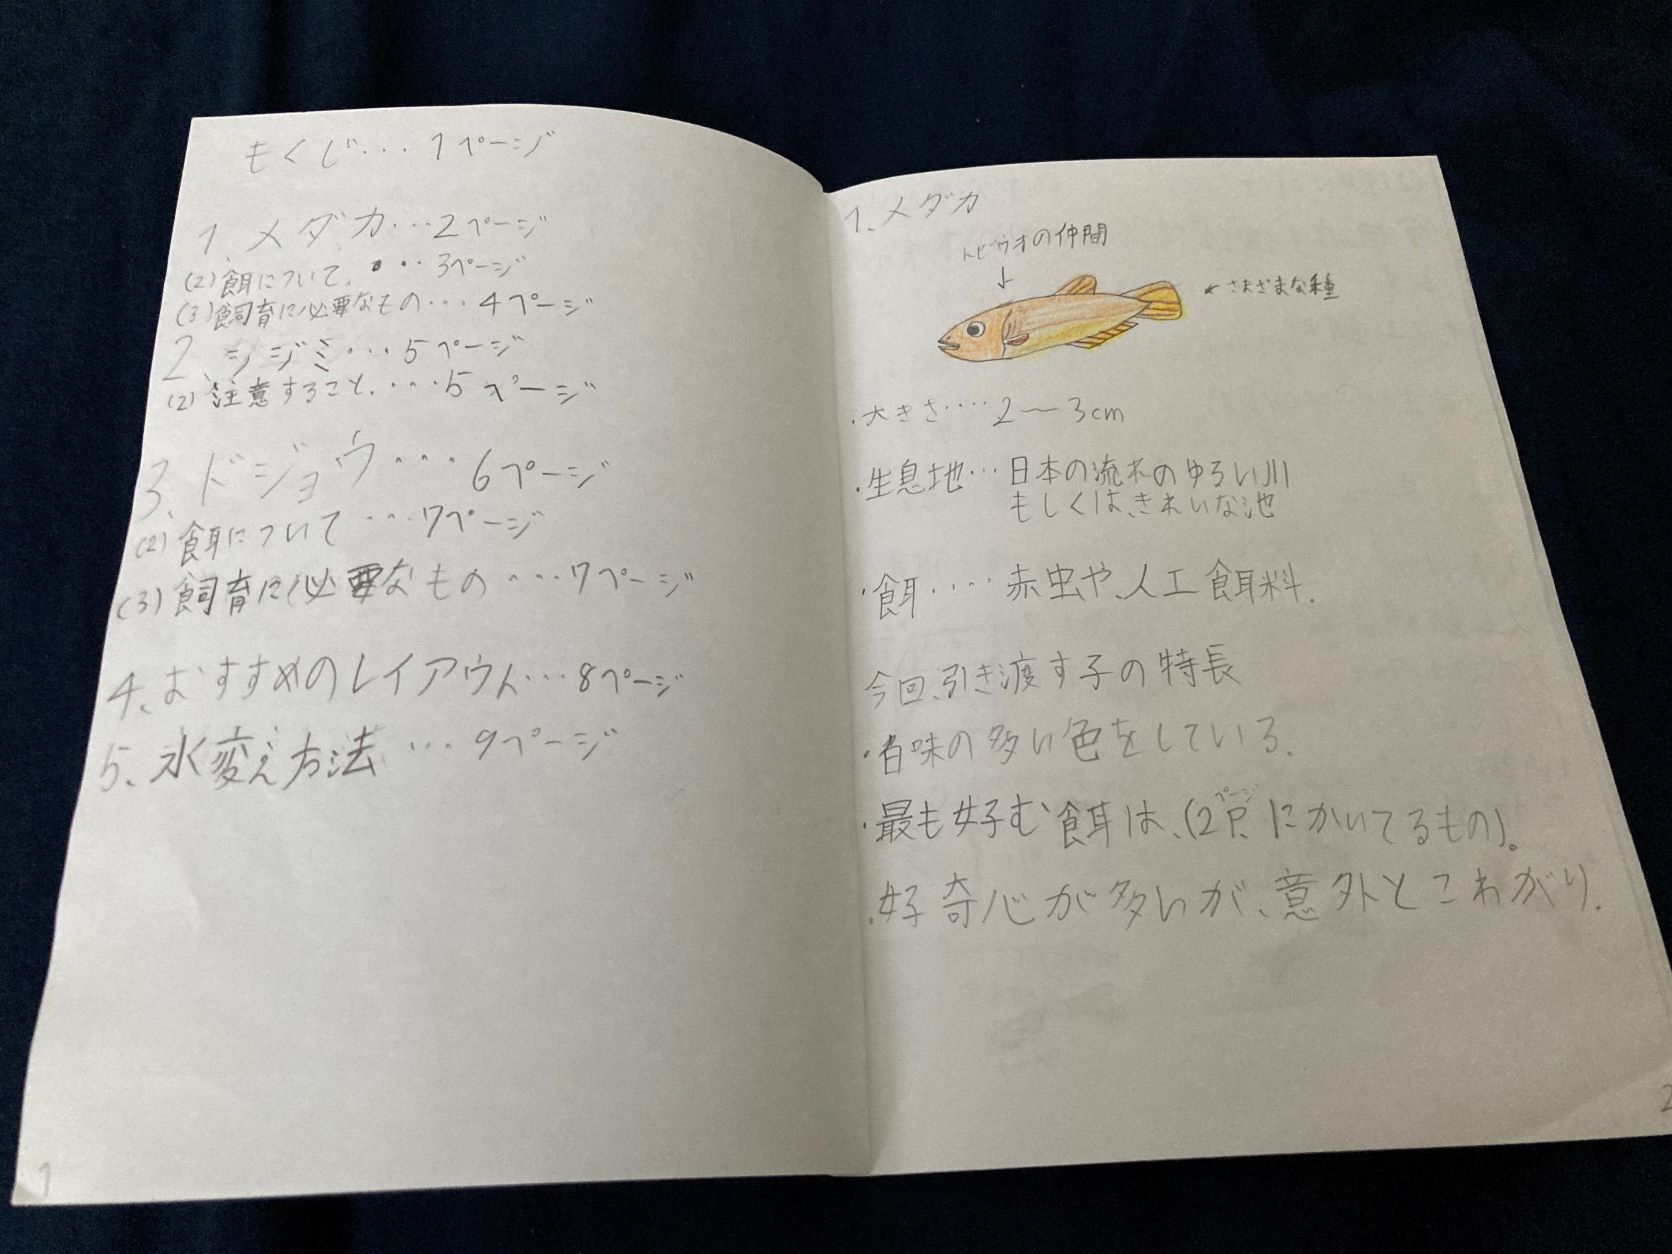 もくじ・・・1ページ
1、メダカ・・・2ページ
(2)餌について、・・・3ページ
(3)飼育に必要なもの・・・4ページ
2、シジミ・・・5ページ
(2)注意すること、・・・5ページ
3、ドジョウ・・・6ページ
(2)餌について・・・7ページ
(3)飼育に必要なもの・・・7ページ
4、おすすめのレイアウト・・・8ページ
5、水変え方法・・・9ページ
1
1、メダカ
トビウオの仲間
さまざまな種
・大きさ・・・・2〜3cm
・生息地・・・日本の流れのゆるい川
もしくは、きれいな池
・餌・・・・赤虫や、人工餌料.
今回、引き渡す子の特長
・白味の多い色をしている.
・最も好む餌は、(2P.ページにかいてるもの)。
・好奇心が多いが、意外とこわがり.
2